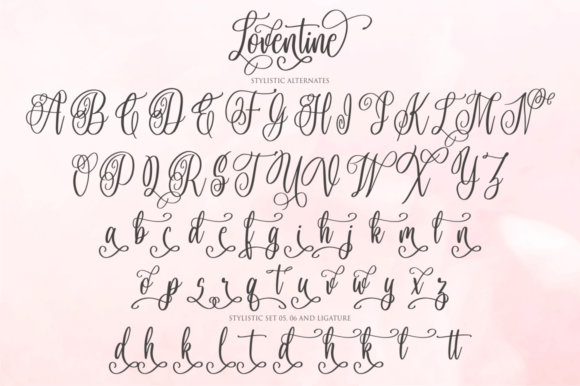 Loventine
STYLISTIC ALTERNATES
A B C D E F G H I J K L M N
O P Q R S T U V W X Y Z
a b c d e f g h i j k m l n
o p s r q t u v w y x z
STYLISTIC SET 05, 06 AND LIGATURE
d h k l t d h k l tt